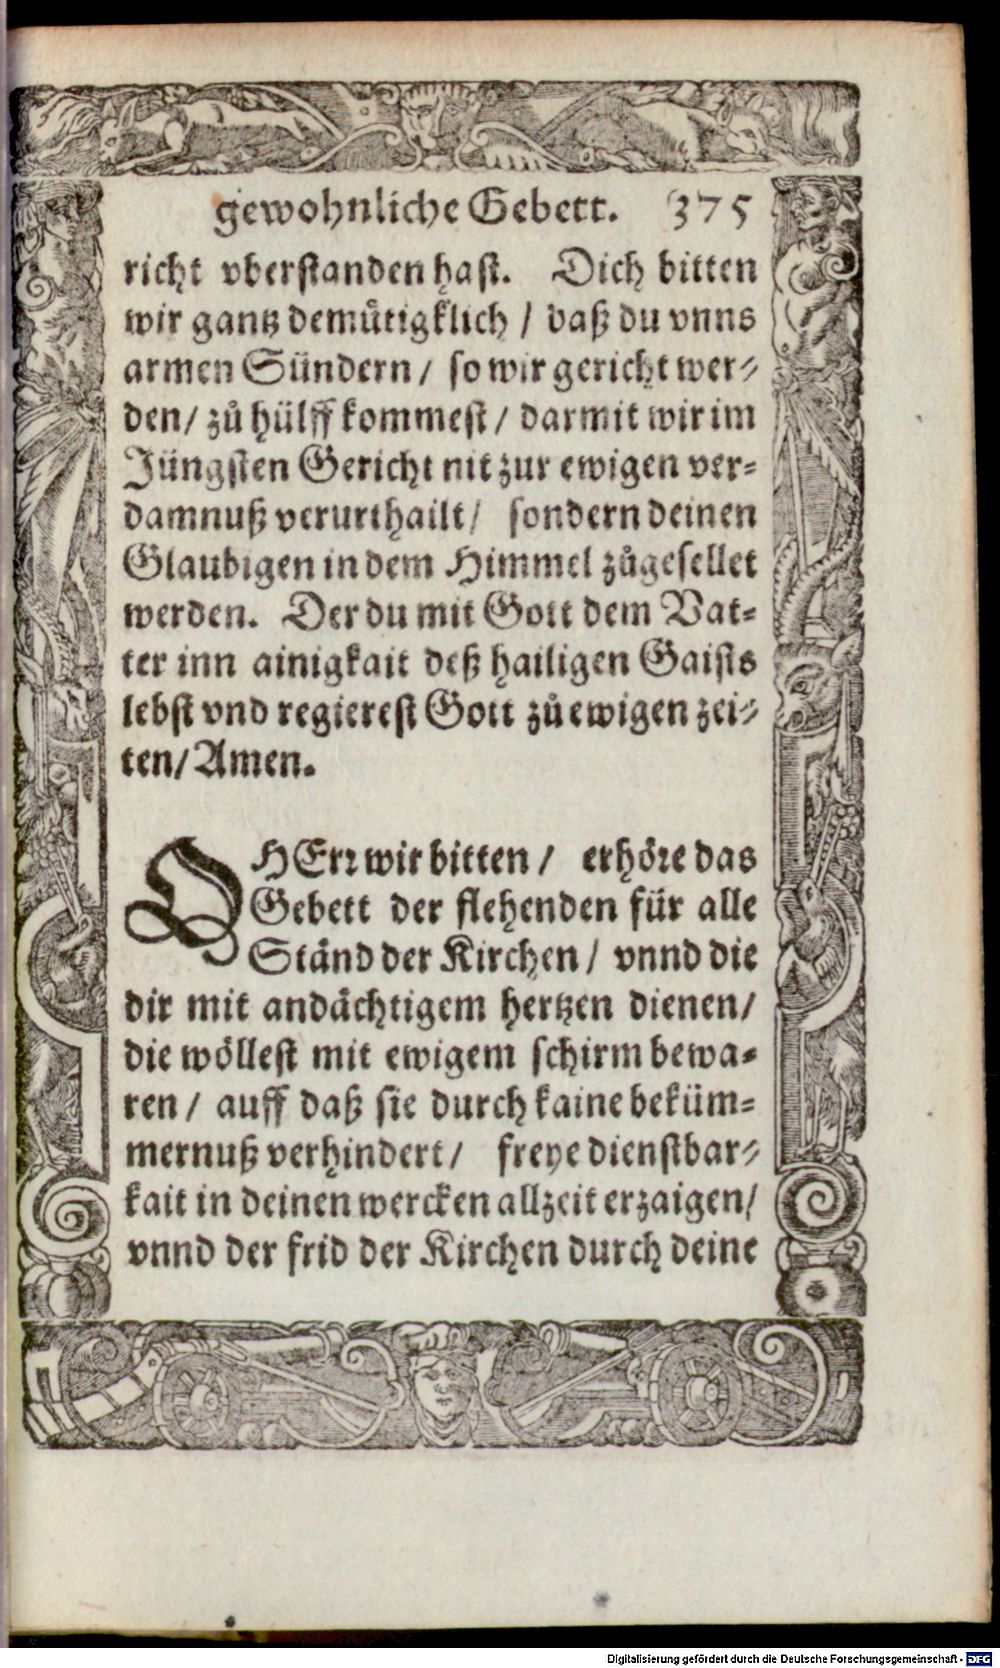 gewohnliche Gebett. 375
richt vberstanden hast. Dich bitten
wir gantz demuͤtigklich / daß du vnns
armen Sündern / so wir gericht wer-
den / zů hülff kommest / darmit wir im
Jüngsten Gericht nit zur ewigen ver-
damnuß verurthailt / sondern deinen
Glaubigen in dem Himmel zůgesellet
werden. Der du mit Gott dem Vat-
ter inn ainigkait deß hailigen Gaists
lebst vnd regierest Gott zů ewigen zei-
ten / Amen.
O HErr wir bitten / erhöre das
Gebett der flehenden für alle
Ständ der Kirchen / vnnd die
dir mit andächtigem hertzen dienen /
die wöllest mit ewigem schirm bewa-
ren / auff daß sie durch kaine beküm-
mernuß verhindert / freye dienstbar-
kait in deinen wercken allzeit erzaigen /
vnnd der frid der Kirchen durch deine
Digitalisierung gefördert durch die Deutsche Forschungsgemeinschaft - DFG